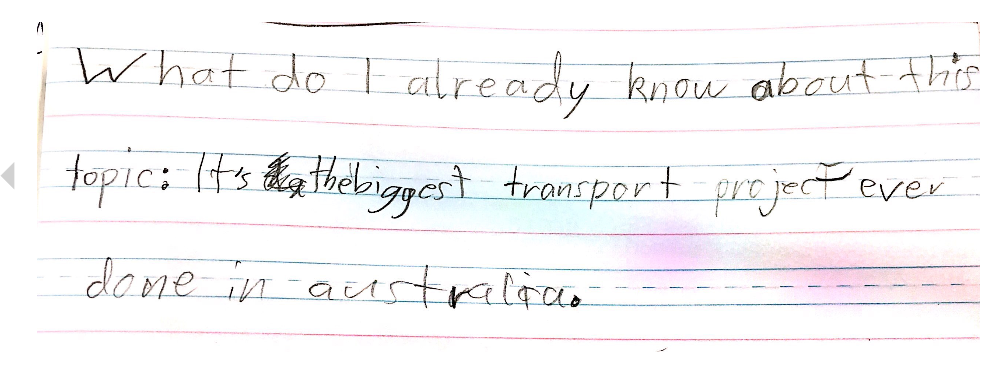 What do I already know about this
topic: It's the biggest transport project ever
done in australia.